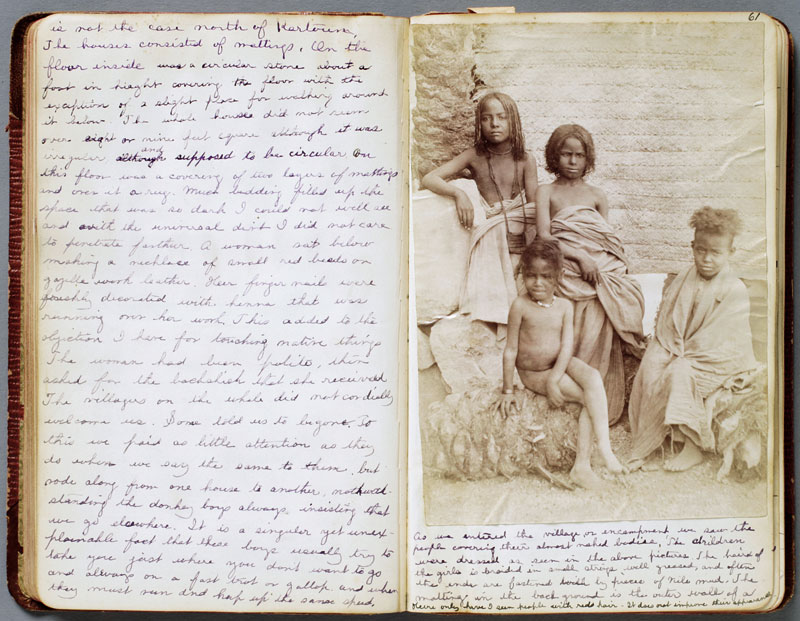 is not the case north of Kartoum.
The houses consisted of mattings. On the
floor inside was a circular stone about a
foot in height covering the floor with the
exception of a slight place for walking around
it below. The whole house did not seem
over eight or nine feet square although it was
irregular and although supposed to be circular. On
this floor was a covering of two layers of mattings
and over it a rug. Much bedding filled up the
space that was so dark I could not well see
and with the universal dirt I did not care
to penetrate farther. A woman sat below
making a necklace of small red beads on
gazelle work leather. Her finger nails were
decorated with henna that was
running over her work. This added to the
objection I have for touching native things
The woman had been polite, then
asked for the bachshish that she received
The villagers on the whole did not cordially
welcome us. Some told us to begone. To
this we paid as little attention as they
do when we say the same to them, but
rode along from one house to another, notwith-
standing the donkey boys always insisting that
we go elsewhere. It is a singular yet unex-
plainable fact that these boys usually try to
take you just where you don't want to go
and always on a fast trot or gallop and when
they must run and keep up the same speed.
61
As we entered the village or encampment we saw the
people covering their almost naked bodies. The children
were dressed as seen in the above pictures. The hair of
the girls is braided in small strips well greased, and often
the ends are fastened with by pieces of Nile mud. The
matting in the back ground is the outer wall of a
Here only have I seen people with red hair. It does not improve their appearance